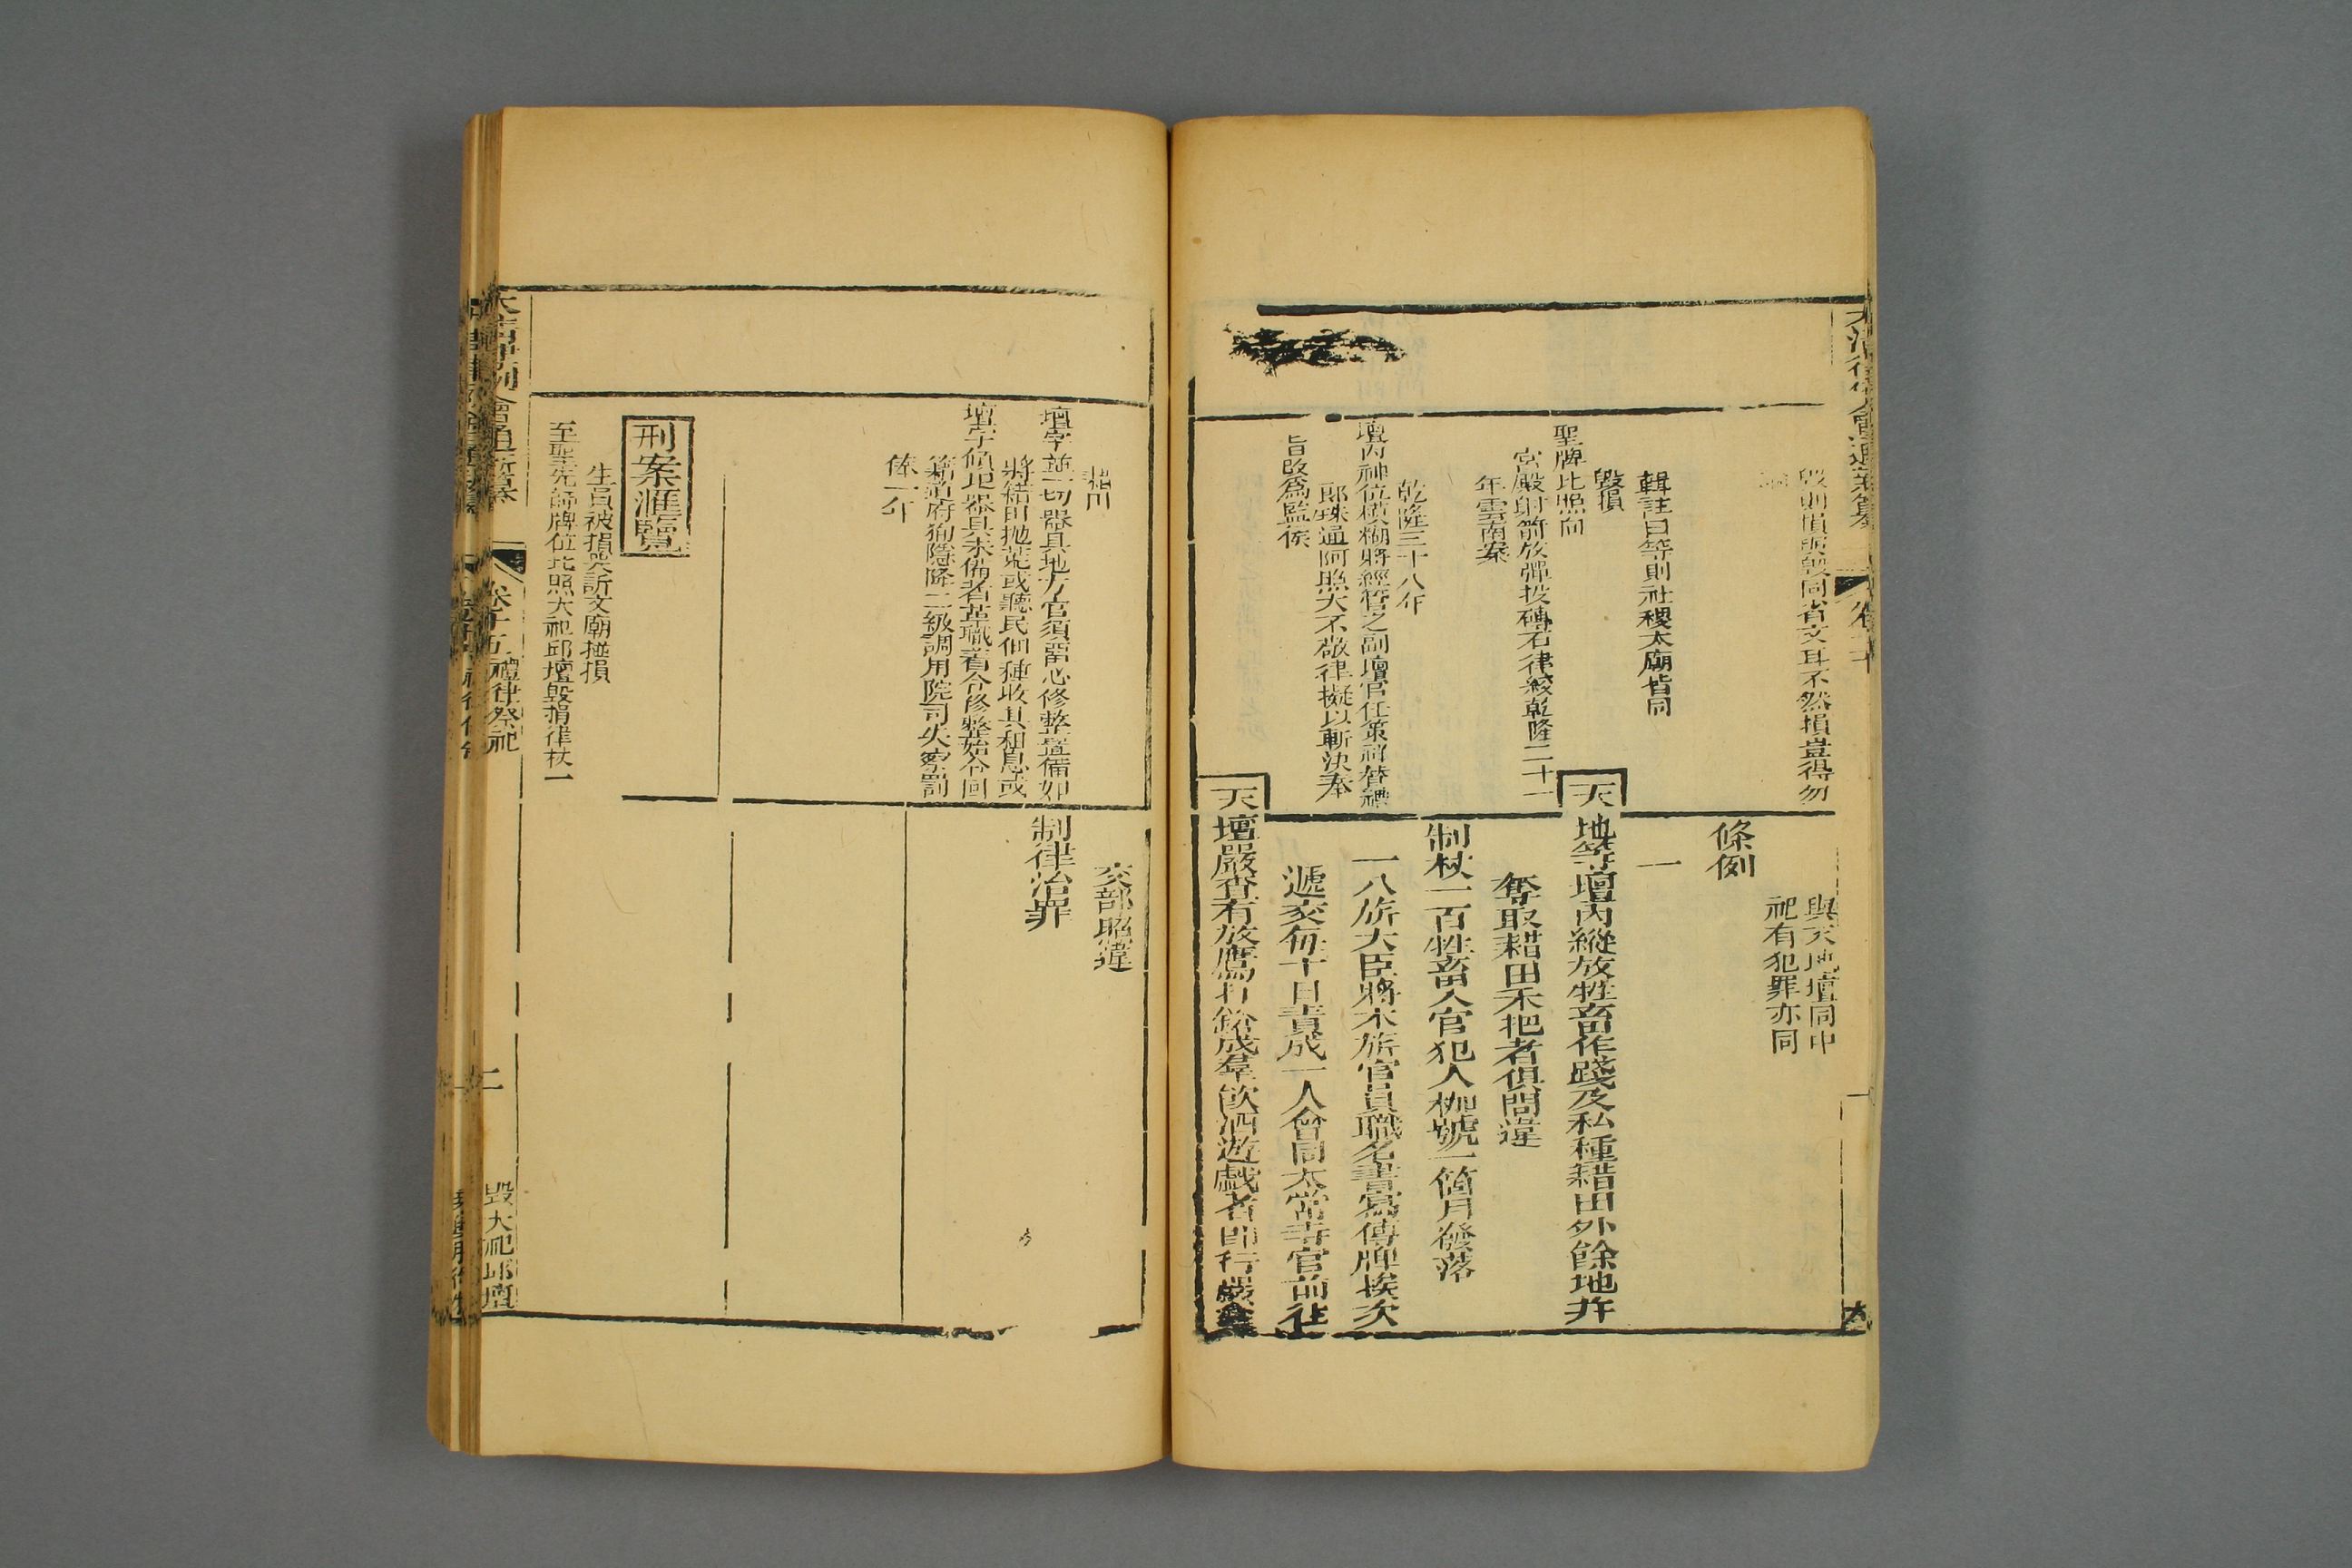 毀則損與毀同省文耳不然損豈得勿
輯註曰等則社稷太廟皆同
毀損
聖牌比照向
宮殿射箭放彈投磚石律絞乾隆二十一
年雲南案
乾隆三十八年
壇內神位模糊將經管之副壇官任策祥替禮
郎殊通阿照大不敬律擬以斬決奉
旨改爲監候
與天地壇同中
祀有犯罪亦同
條例
一
天地等壇內縱放牲畜作踐及私種耤田外餘地并
奪取耤田禾把者俱問違
制杖一百牲畜入官犯人枷號一箇月發落
一八旂大臣將本旂官員職名書寫傳牌挨次
遞交每十日責成一人會同太常寺官前往
天壇嚴查有放鷹打鎗成羣飲酒遊戲者即行嚴拿
耤田
壇宇並一切器具地方官須留心修整置備如
將耤田抛荒或聽民佃種收其租息或
壇宇傾圮器具未備者革職著令修整始令回
籍道府狥隱降二級調用院司失察罰
俸一年
刑案滙覽
生員被損哭訴文廟搥損
至聖先師牌位比照大祀邱壇毀損律杖一
交部照違
制律治罪
大清律例會通新纂
卷十五禮律祭祀
二
毀大祀邱壇